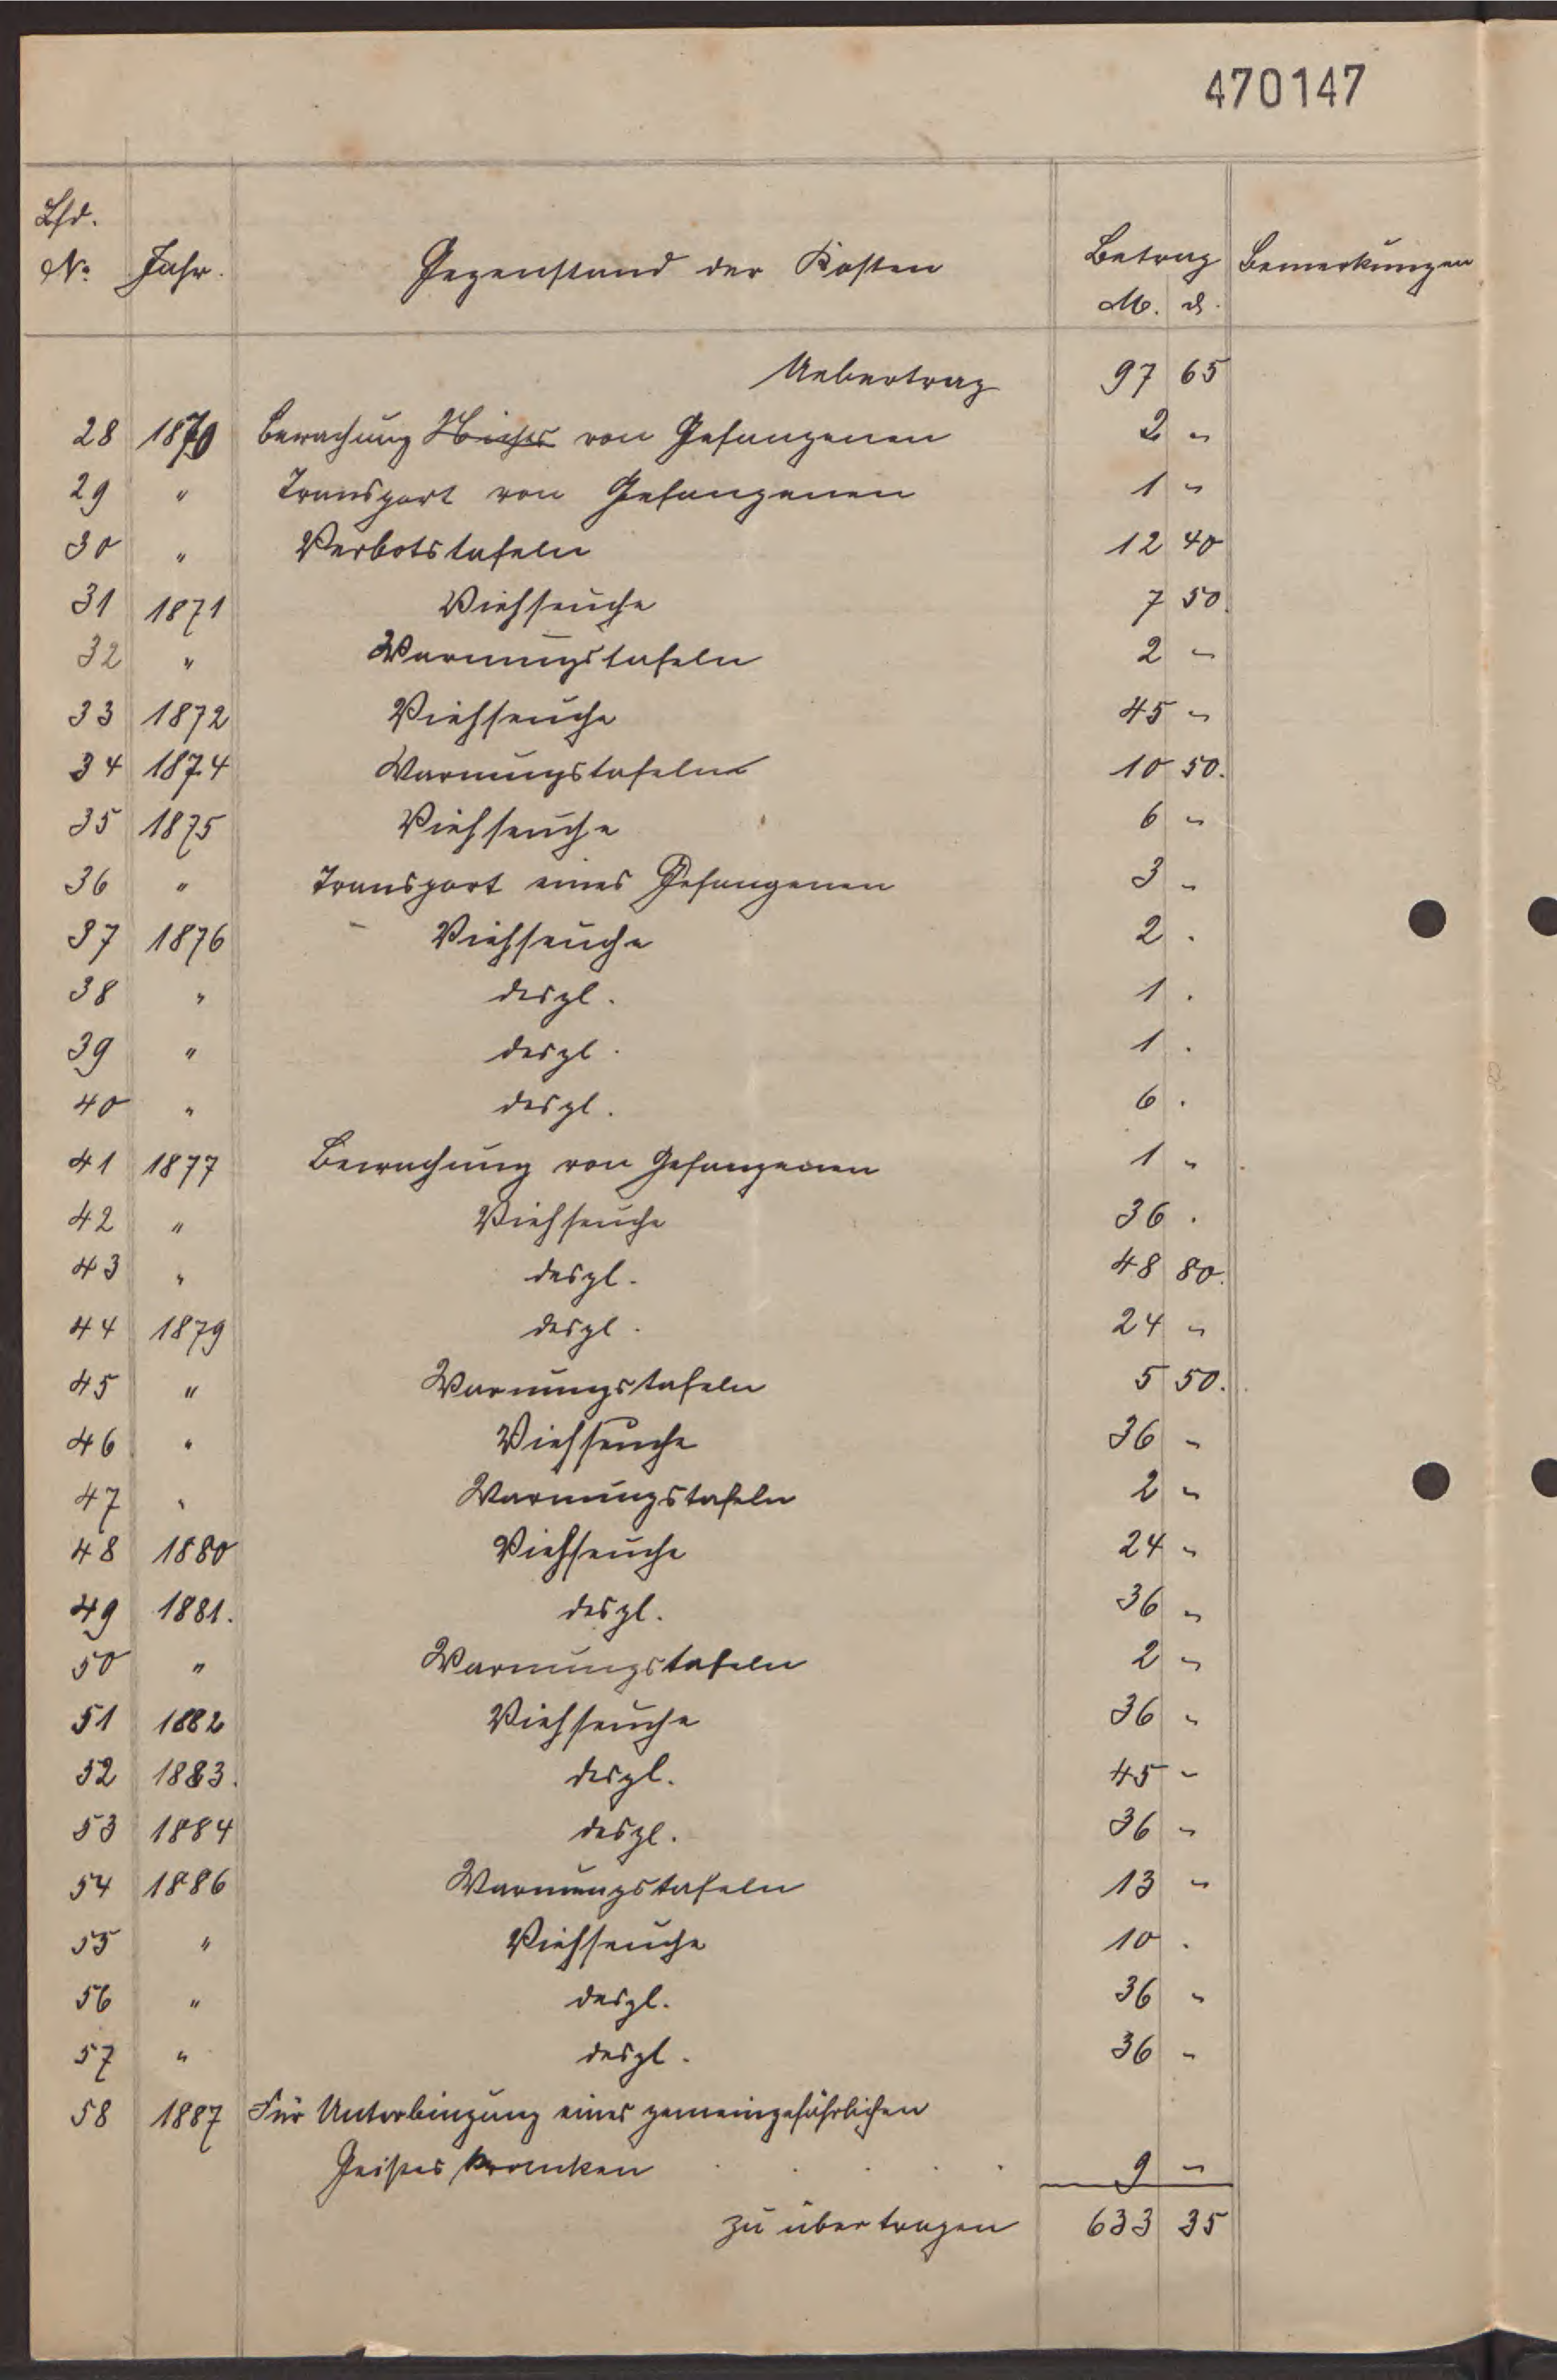 470147
Lfd.
No. Jahr. Gegenstand der Kosten Betrag Bemerkungen
M. ₰.
Uebertrag 97 65
28 1870 Bewachung von Gefangenen 2 "
29 " Transport von Gefangenen 1 "
30 " Verbotstafeln 12 40
31 1871 Viehseuche 7 50.
32 " Warnungstafeln 2 "
33 1872 Viehseuche 45 "
34 1874 Warnungstafeln 10 50.
35 1875 Viehseuche 6 "
36 " Transport eines Gefangenen 3 "
37 1876 Viehseuche 2 .
38 " desgl. 1 .
39 " desgl. 1 .
40 " desgl. 6 .
41 1877 Bewachung von Gefangenen 1 "
42 " Viehseuche 36 .
43 " desgl. 48 80.
44 1879 desgl. 24 "
45 " Warnungstafeln 5 50.
46 " Viehseuche 36 "
47 " Warnungstafeln 2 "
48 1880 Viehseuche 24 "
49 1881. desgl. 36 "
50 " Warnungstafeln 2 "
51 1882 Viehseuche 36 "
52 1883. desgl. 45 "
53 1884 desgl. 36 "
54 1886 Warnungstafeln 13 "
55 " Viehseuche 10 .
56 " desgl. 36 "
57 " desgl. 36 "
58 1887 Für Unterbingung eines gemeingefährlichen
Geistes kranken . . . . 9 "
zu übertragen 633 35